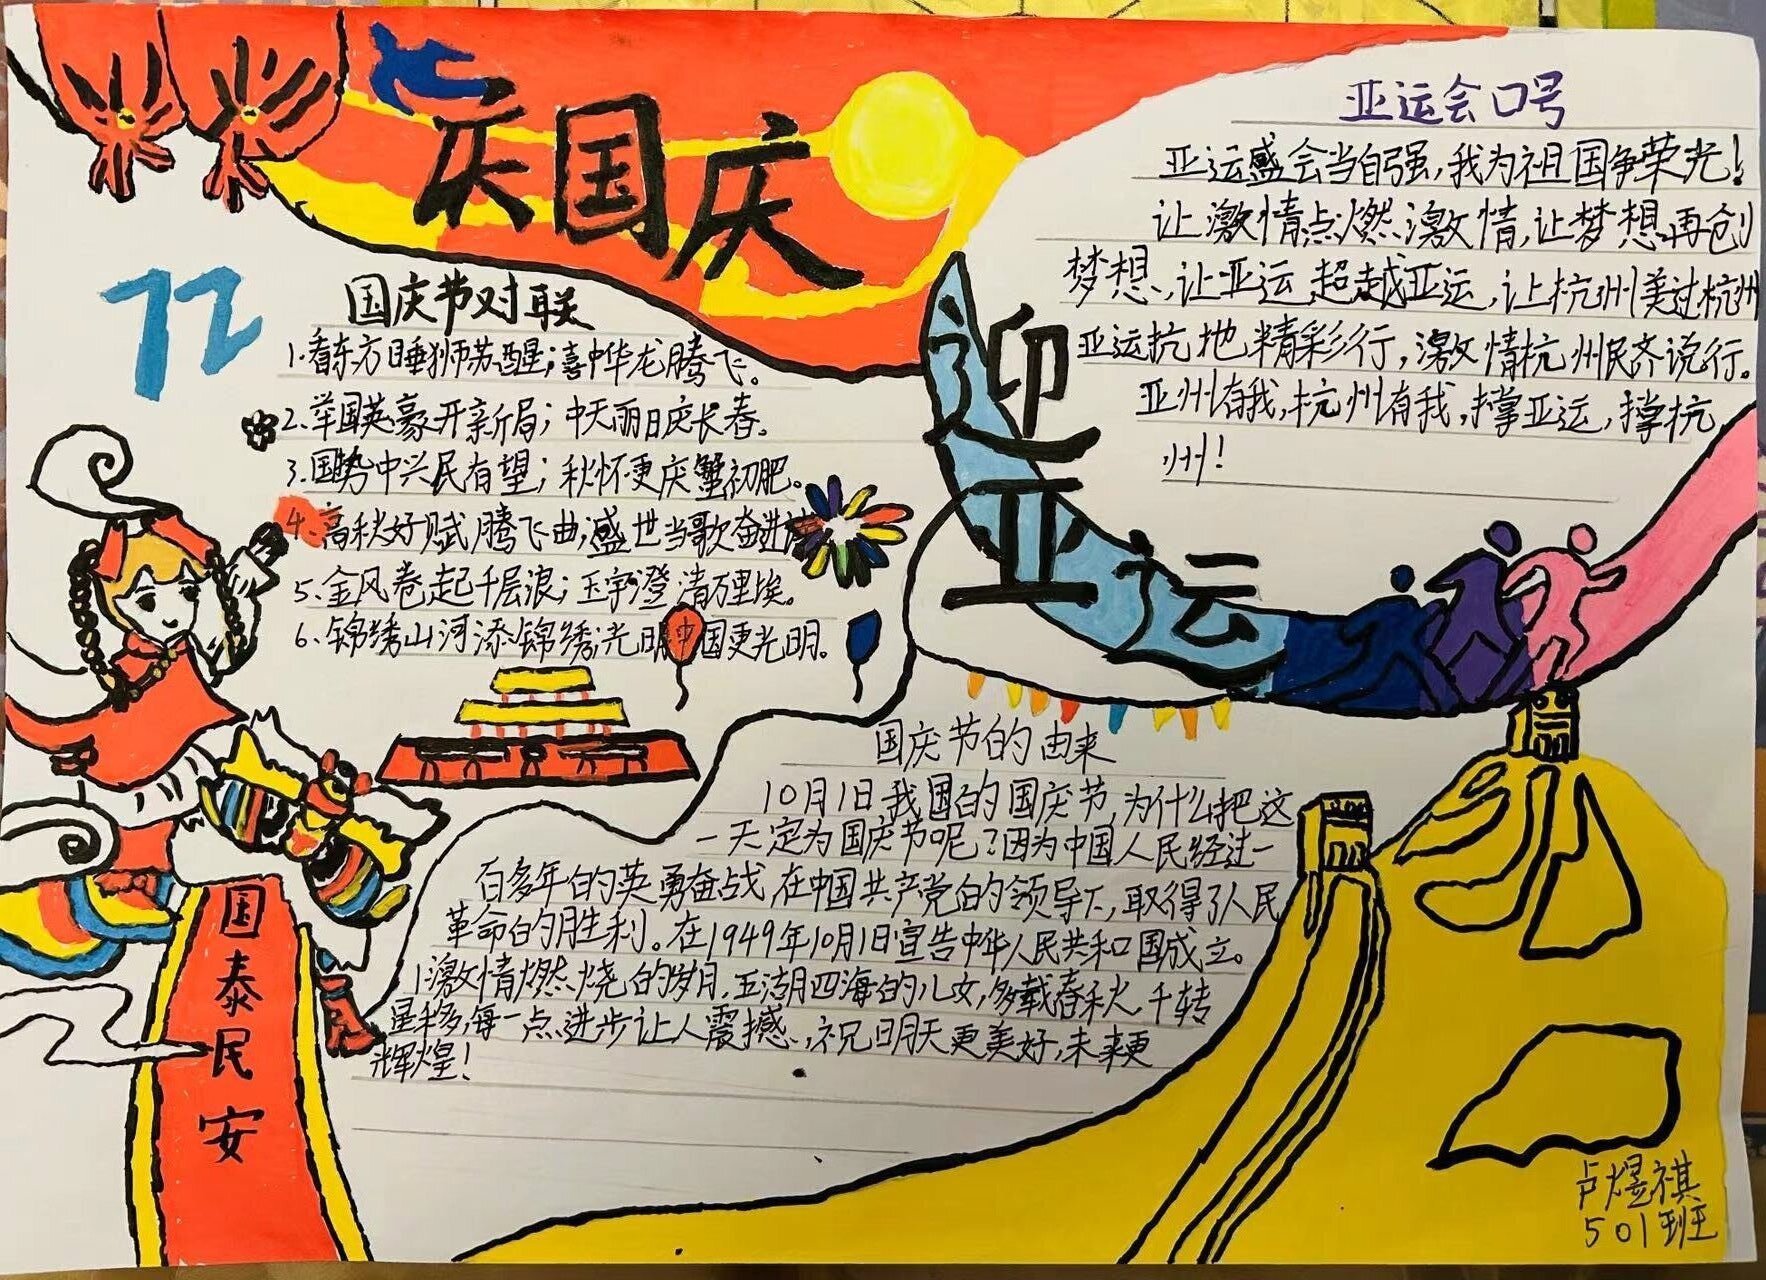 庆国庆
72
国庆节对联
1.看东方睡狮苏醒;喜中华龙腾飞。
2.举国英豪开新局;中天丽日庆长春。
3.国势中兴民有望;秋怀更庆蟹初肥。
4、高秋好赋腾飞曲,盛世当歌奋进
5、金风卷起千层浪;玉宇澄清万里埃。
6、锦绣山河添锦绣;光明中国更光明。
国泰民安
亚运会口号
亚运盛会当自强,我为祖国争荣光!
让激情点燃激情,让梦想再创
梦想,让亚运超越亚运,让杭州美过杭州
亚运杭地精彩行,激情杭州民齐说行。
亚州有我,杭州有我,撑亚运,撑杭
州!
迎亚运
国庆节的由来
10月1日我国的国庆节,为什么把这
一天定为国庆节呢?因为中国人民经过一
百多年的英勇奋战,在中国共产党的领导下,取得了人民
革命的胜利。在1949年10月1日宣告中华人民共和国成立。
激情燃烧的岁月,五湖四海的儿女,多载春秋,千转
星移,每一点进步让人震撼,祝明天更美好,未来更
辉煌!
卢煜祺
501班